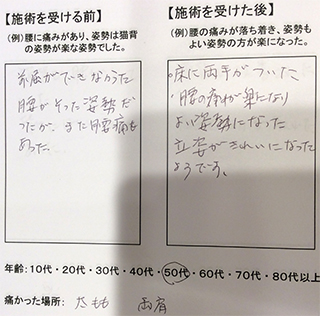 【施術を受ける前】
(例)腰に痛みがあり、姿勢は猫背
の姿勢が楽な姿勢でした。
前屈ができなかった
腰がそった姿勢だ
ったが、また腰痛も
あった。
【施術を受けた後】
(例)腰の痛みが落ち着き、姿勢も
よい姿勢の方が楽になった。
・床に両手がついた
・腰の痛みが楽になり
よい姿勢になった
立姿がきれいになった
ようです。
年齢:10代・20代・30代・40代・50代・60代・70代・80代以上
痛かった場所: 左もも 両肩